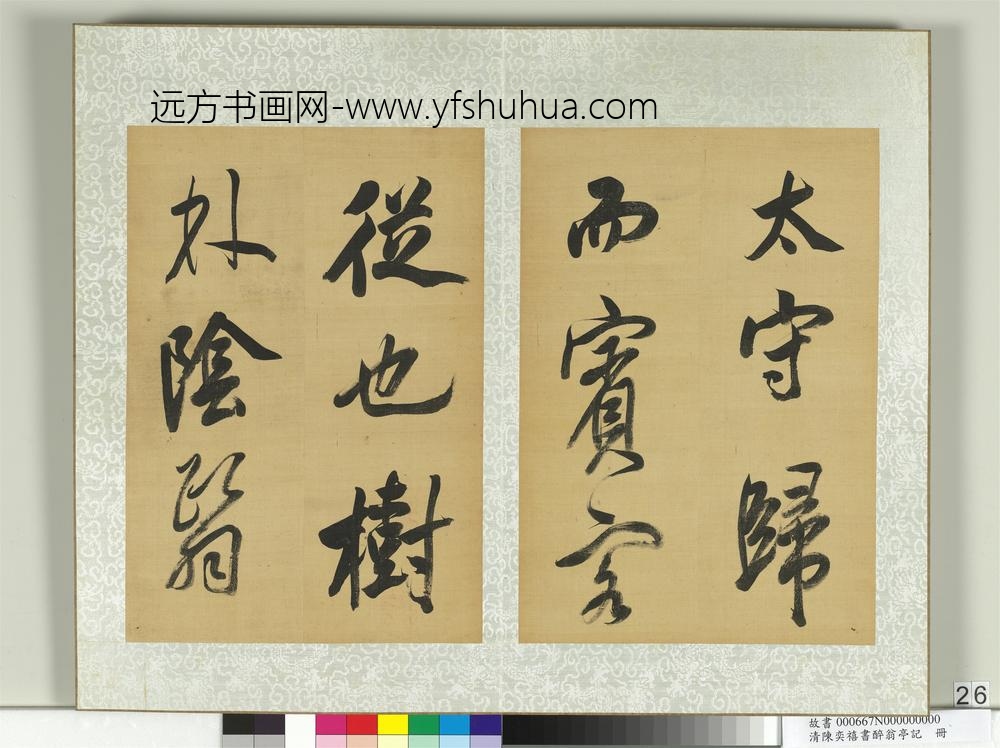 远方书画网-www.yfshuhua.com
太守歸
而賓客
從也樹
林陰翳
26
故書 000667N000000000
清陳奕禧書醉翁亭記 冊